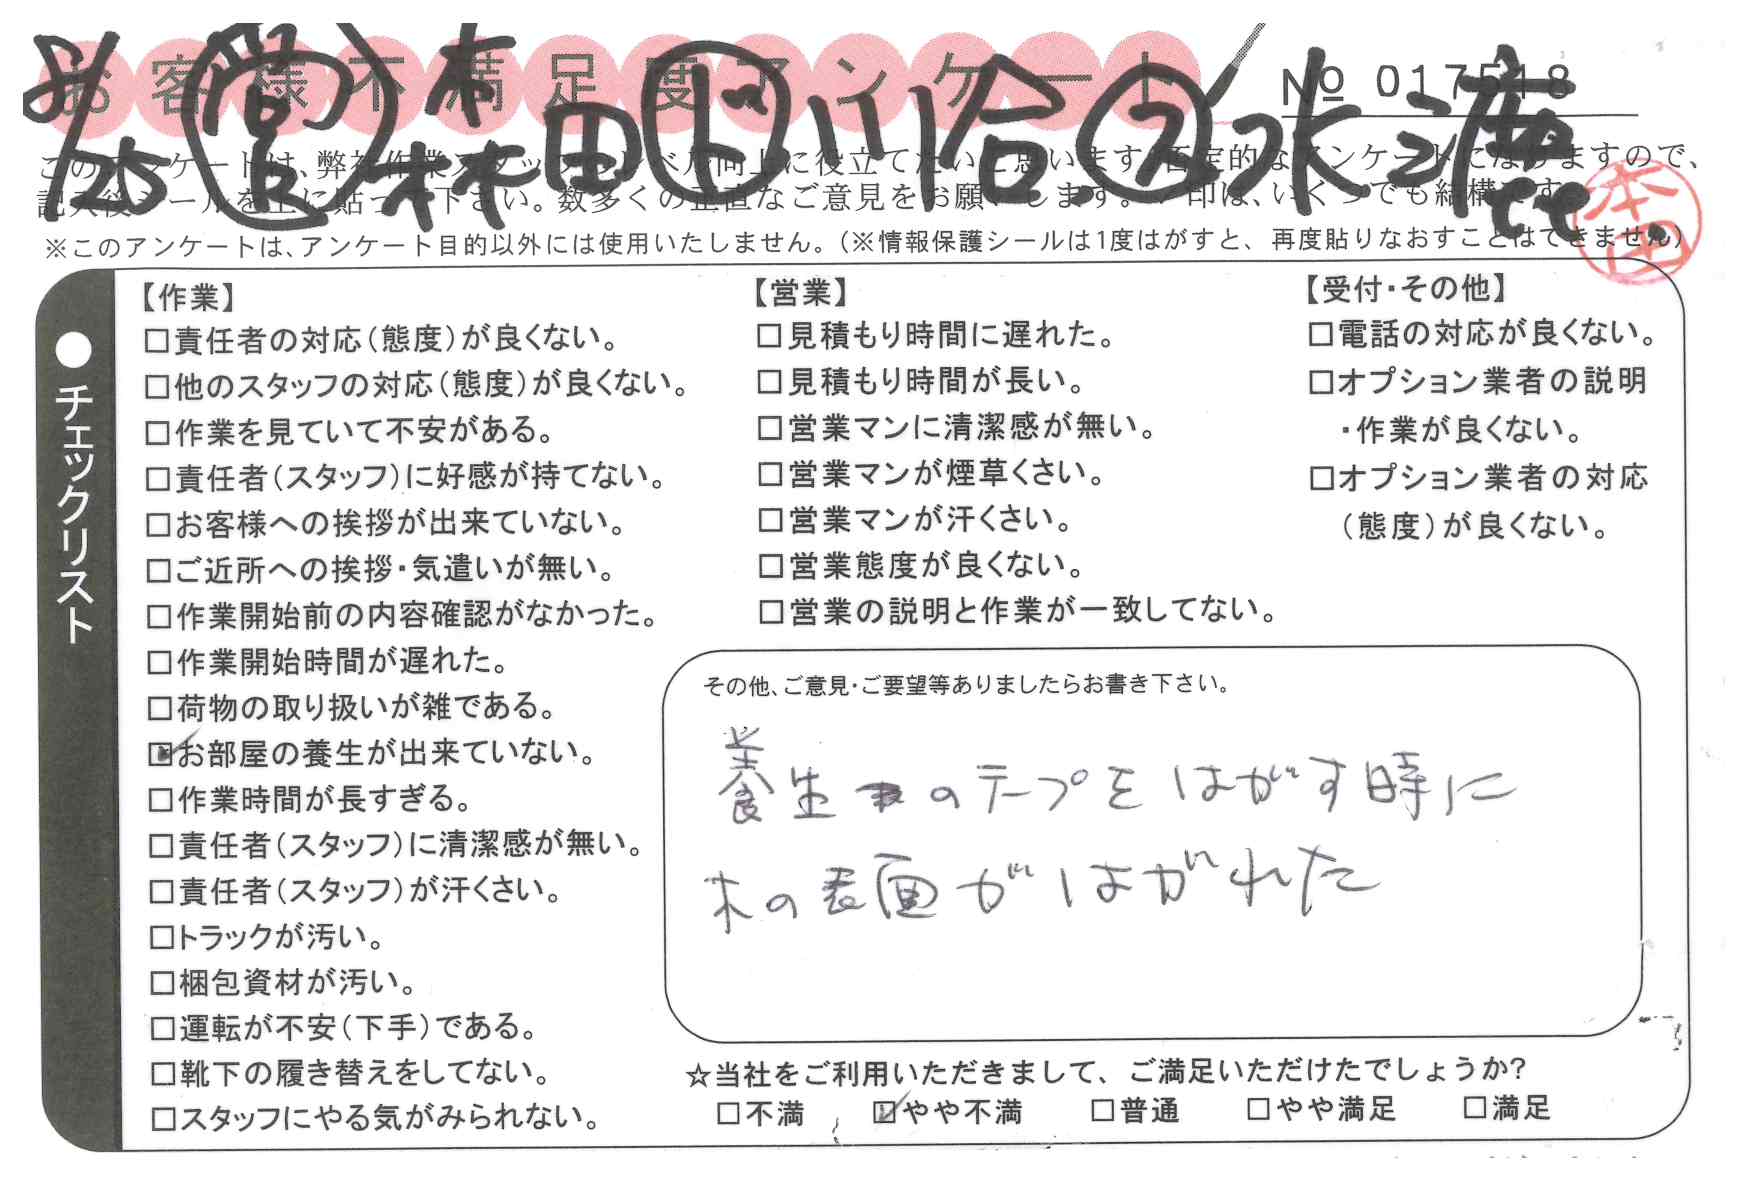 お客様不満足度アンケート
№ 017518
8/25 営 森田 ド 川合 ス 水
このアンケートは、弊社作業スタッフのレベル向上に役立てたいと思います。否定的なアンケートになりますので、
記入後シールを上に貼って下さい。数多くの正直なご意見をお願いします。✓印は、いくつでも結構です。
※このアンケートは、アンケート目的以外には使用いたしません。(※情報保護シールは1度はがすと、再度貼りなおすことはできません)
本田
●チェックリスト
【作業】
□責任者の対応(態度)が良くない。
□他のスタッフの対応(態度)が良くない。
□作業を見ていて不安がある。
□責任者(スタッフ)に好感が持てない。
□お客様への挨拶が出来ていない。
□ご近所への挨拶・気遣いが無い。
□作業開始前の内容確認がなかった。
□作業開始時間が遅れた。
□荷物の取り扱いが雑である。
☑お部屋の養生が出来ていない。
□作業時間が長すぎる。
□責任者(スタッフ)に清潔感が無い。
□責任者(スタッフ)が汗くさい。
□トラックが汚い。
□梱包資材が汚い。
□運転が不安(下手)である。
□靴下の履き替えをしてない。
□スタッフにやる気がみられない。
【営業】
□見積もり時間に遅れた。
□見積もり時間が長い。
□営業マンに清潔感が無い。
□営業マンが煙草くさい。
□営業マンが汗くさい。
□営業態度が良くない。
□営業の説明と作業が一致してない。
【受付・その他】
□電話の対応が良くない。
□オプション業者の説明
・作業が良くない。
□オプション業者の対応
(態度)が良くない。
その他、ご意見・ご要望等ありましたらお書き下さい。
養生のテープをはがす時に
木の表面がはがれた
☆当社をご利用いただきまして、ご満足いただけたでしょうか?
□不満 ☑やや不満 □普通 □やや満足 □満足